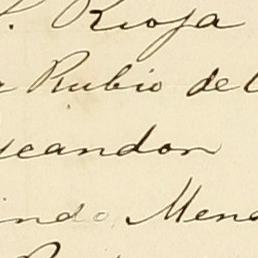 Rioja
Rubio de
scandon
indo Men